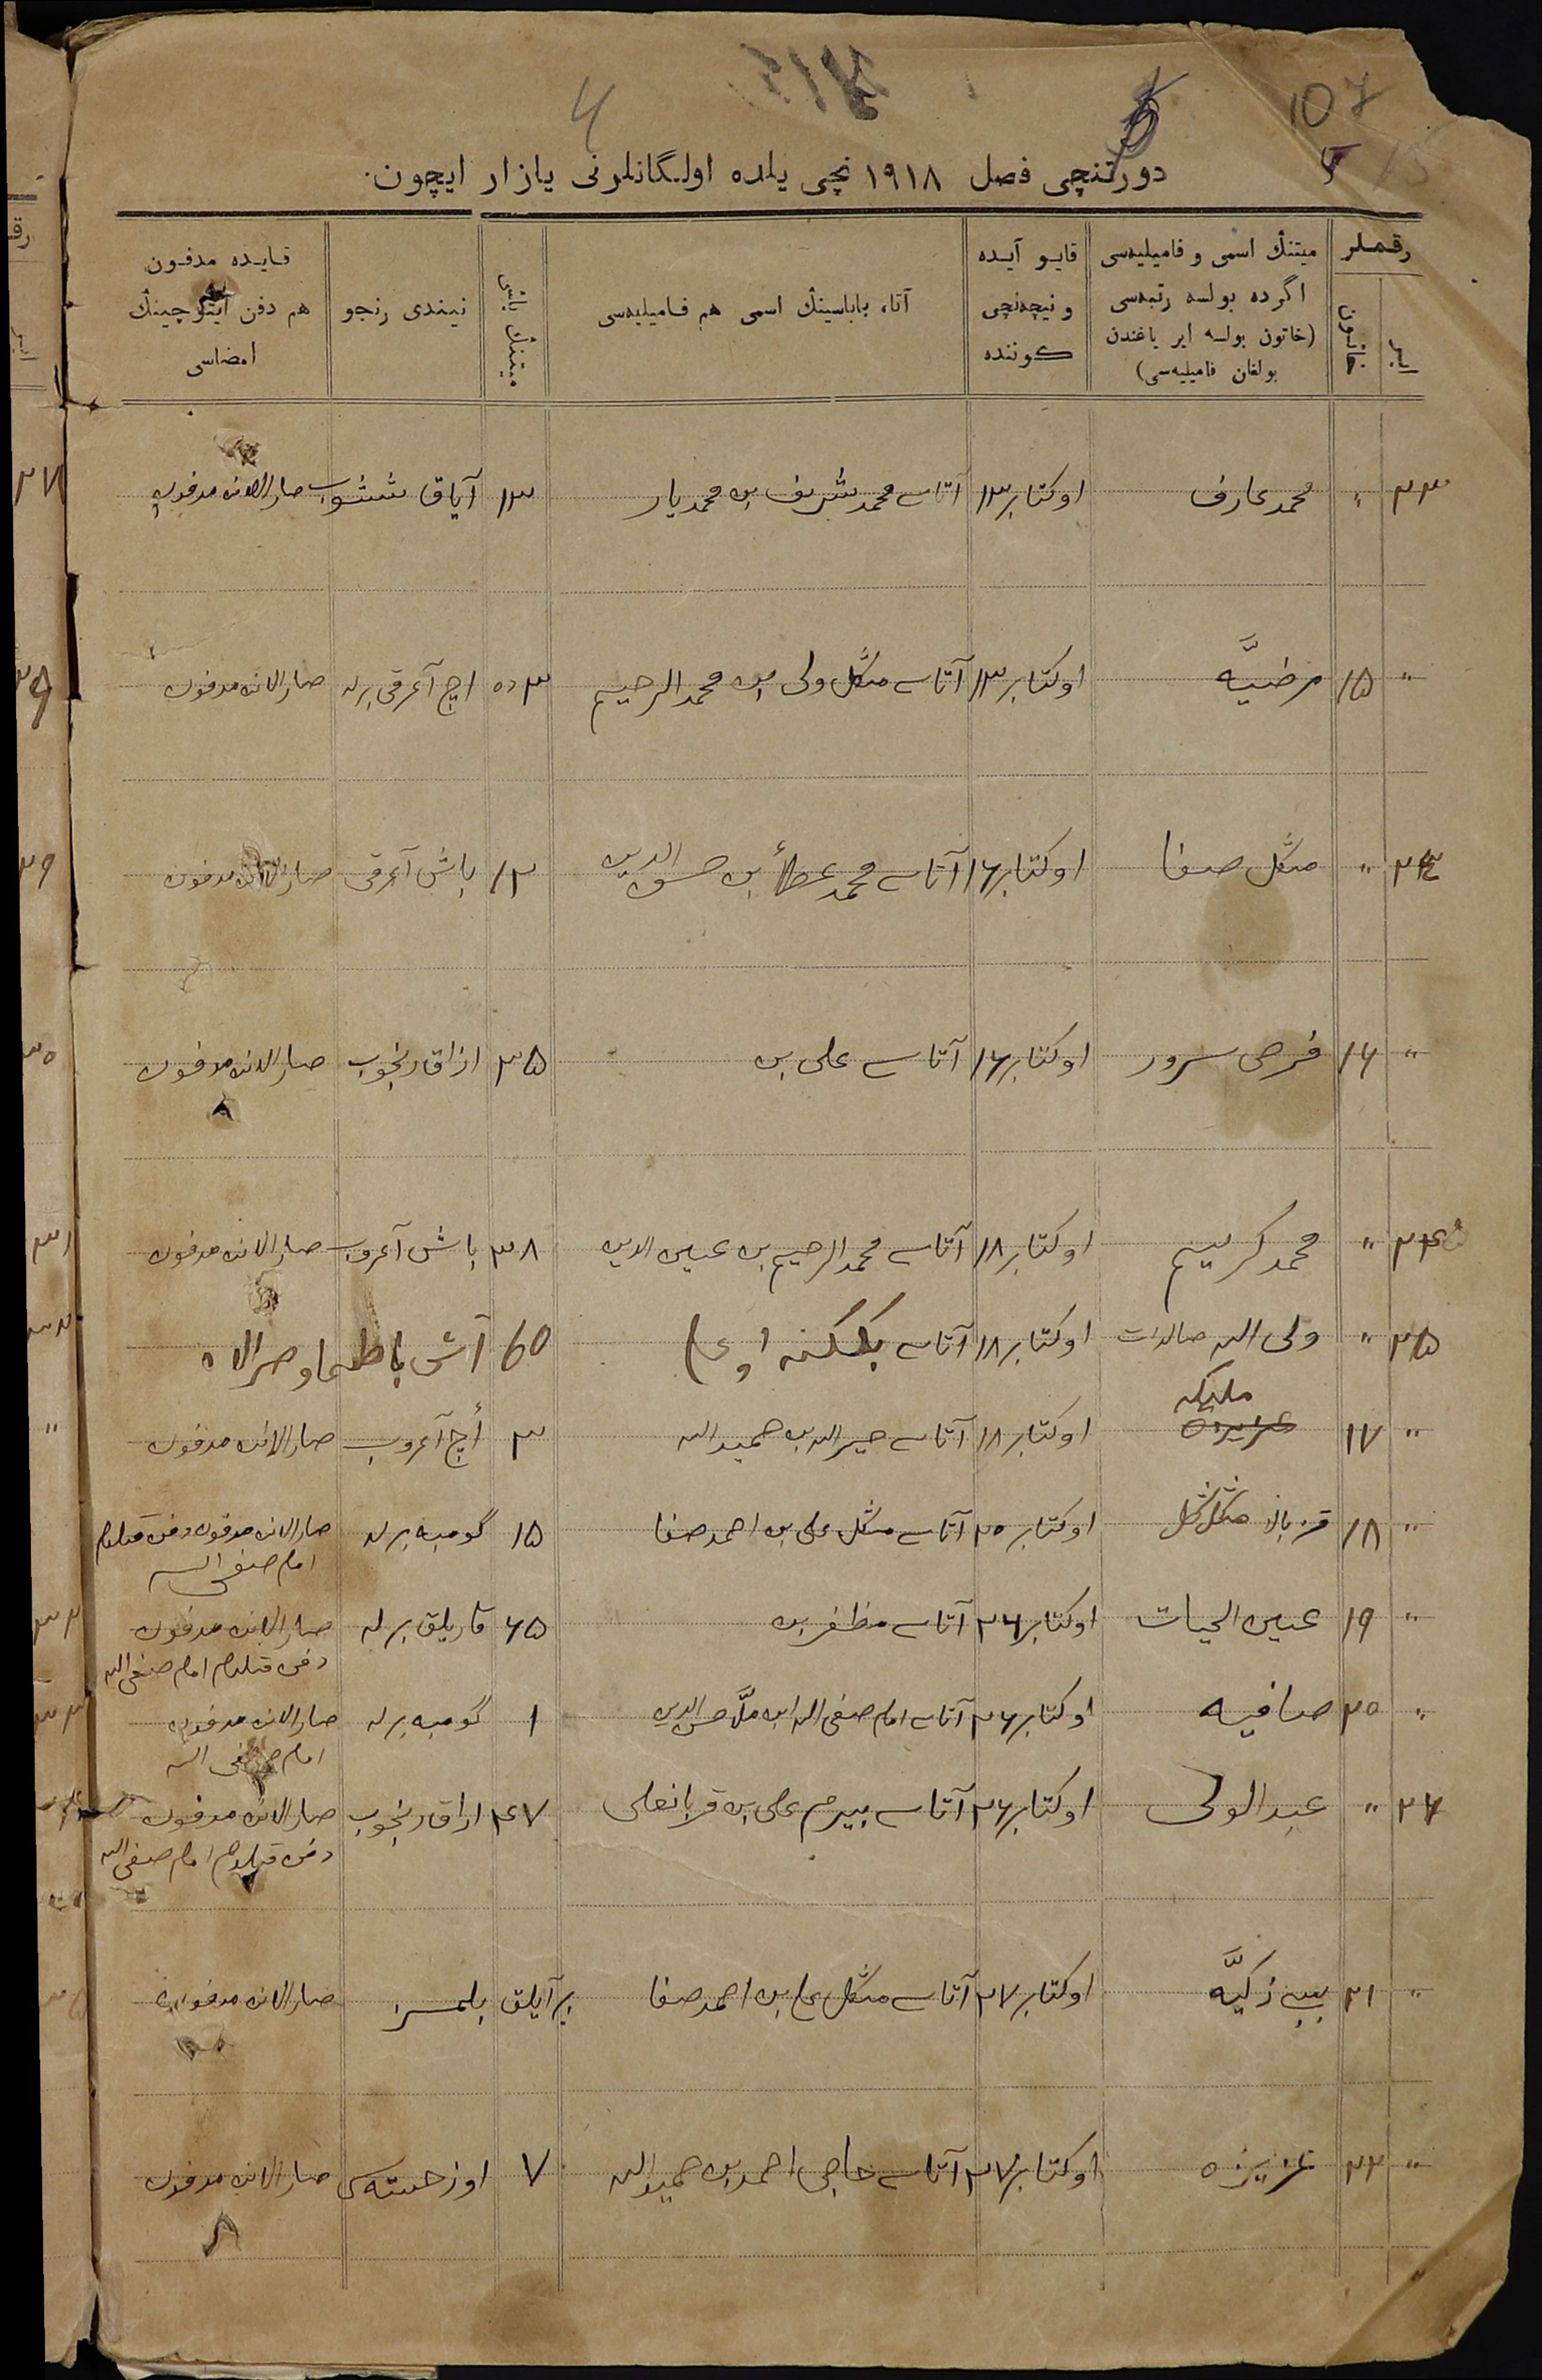 107
4
دورتنچی فصل ۱۹۱۸ نچی یلده اولگانلرنی یازار ایچون.
رقملر
ایر
خاتون
میتنڭ اسمی و فامیلیه‌سی اگرده بولسه رتبه‌سی (خاتون بولسه ایر یاغندن بولغان فامیلیه‌سی)
قایو آیده و نیچه‌نچی كوننده
آتا، باباسینڭ اسمی هم فامیلیه‌سی
میتنڭ یاشی
نیندی رنجو
قایده مدفون هم دفن ایتوچینڭ امضاسی
۲۳ " محمد عارف اوكتابر ۱۳ آتاسے محمد شریف بن محمد یار ۱۳ آیاق شیشوب صار الانده مدفون
" ۱۵ مرضیَّه اوكتابر ۱۳ آتاسے منگل ولی بن محمد الرحیم ۳ ده اچ آغرقی برله صار الانده مدفون
۲۴ " منگل صفا اوكتابر ۱۶ آتاسے محمد عطاء بن حسن الدین ۱۲ باش آغرقی صار الانده مدفون
" ۱۶ فرحی سرور اوكتابر ۱۶ آتاسے علی بن ۳۵ ازاق رنجوب صار الانده مدفون
۲۴ " محمد كریم اوكتابر ۱۸ آتاسے محمد الرحیم بن عین الدین ۳۸ باش آغروب صار الانده مدفون
۲۵ " ولی الله اوكتابر ۱۸ آتاسے 60 آش
" ۱۷ ملیكه اوكتابر ۱۸ آتاسے خیر الله بن حمید الله ۳ اچ آغروب صار الانده مدفون
" ۱۸ قز بالا اوكتابر ۲۰ آتاسے منگل علی بن احمد صفا ۱۵ گومبه برله صار الانده مدفون دفن قیلدم
امام صفی الله
" ۱۹ عین الحیات اوكتابر ۲۶ آتاسے مظفر بن ۶۵ قاریلق برله صار الانده مدفون
دفن قیلدم امام صفی الله
" ۲۰ صافیه اوكتابر ۲۶ آتاسے امام صفی الله ابن ملَّا حسن الدین ۱ گومبه برله صار الانده مدفون
امام صفی الله
۲۶ " عبد الولی اوكتابر ۲۶ آتاسے بیرم علی بن قربانعلی ۴۷ ازاق رنجوب صار الانده مدفون
دفن قیلدم امام صفی الله
" ۲۱ بیبی زكیَّه اوكتابر ۲۷ آتاسے منگل علی بن احمد صفا بر آیلق بلمسز صار الانده مدفون
" ۲۲ عزیزه اوكتابر ۲۷ آتاسے حاجی احمد بن حمید الله ۷ اوز خسته‌سی صار الانده مدفون